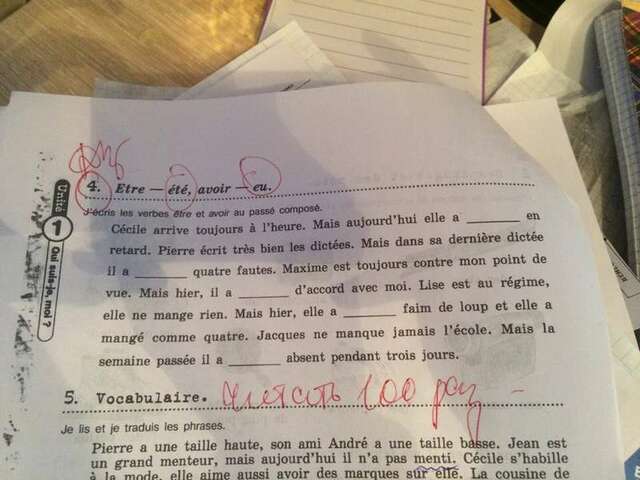 4. Etre — été, avoir — eu.
J'écris les verbes être et avoir au passé composé.
Cécile arrive toujours à l'heure. Mais aujourd'hui elle a ________ en
retard. Pierre écrit très bien les dictées. Mais dans sa dernière dictée
il a ________ quatre fautes. Maxime est toujours contre mon point de
vue. Mais hier, il a ________ d'accord avec moi. Lise est au régime,
elle ne mange rien. Mais hier, elle a ________ faim de loup et elle a
mangé comme quatre. Jacques ne manque jamais l'école. Mais la
semaine passée il a ________ absent pendant trois jours.
Unité
1
Qui suis-je, moi ?
5. Vocabulaire. читать 100 раз
Je lis et je traduis les phrases.
Pierre a une taille haute, son ami André a une taille basse. Jean est
un grand menteur, mais aujourd'hui il n'a pas menti. Cécile s'habille
à la mode, elle aime aussi avoir des marques sur elle. La cousine de